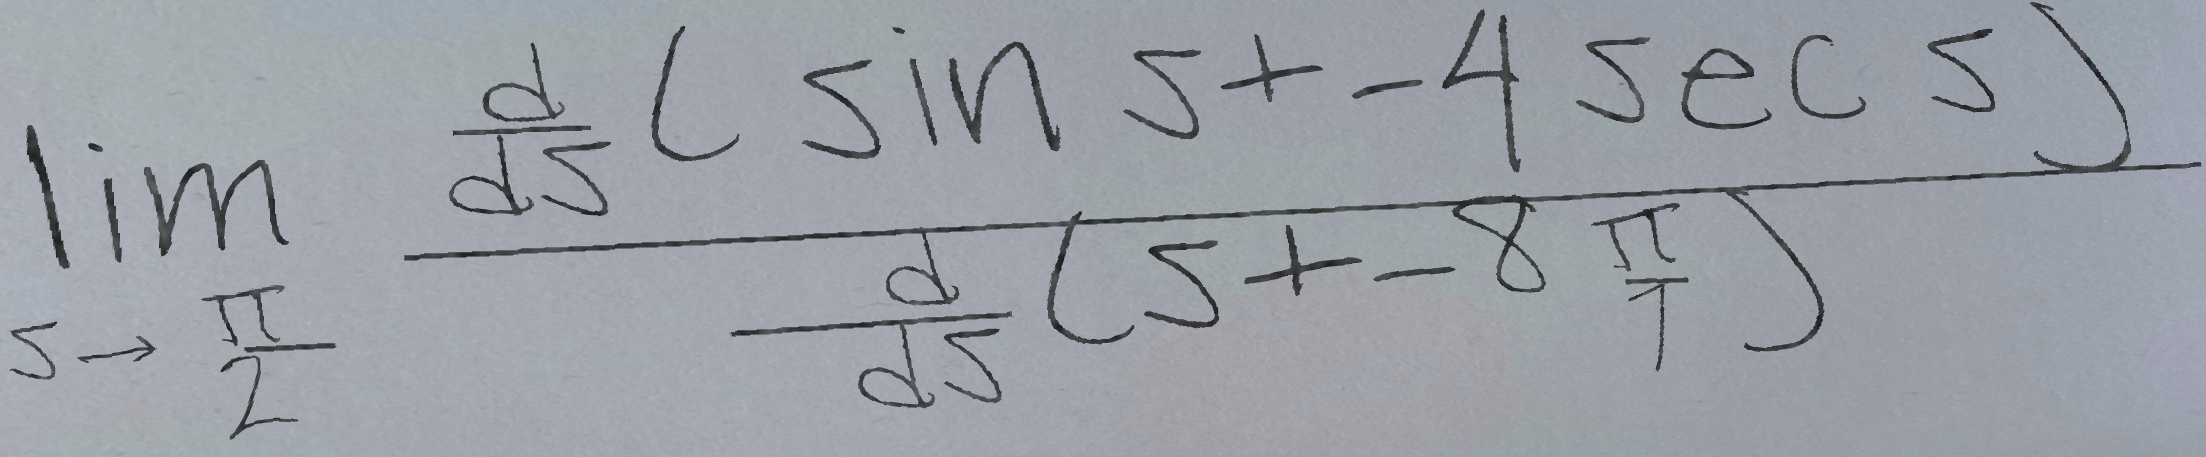 \lim_{s \to \frac{\pi}{2}} \frac{\frac{d}{ds}(\sin s + -4 \sec s)}{\frac{d}{ds}(s + -8 \frac{\pi}{1})}